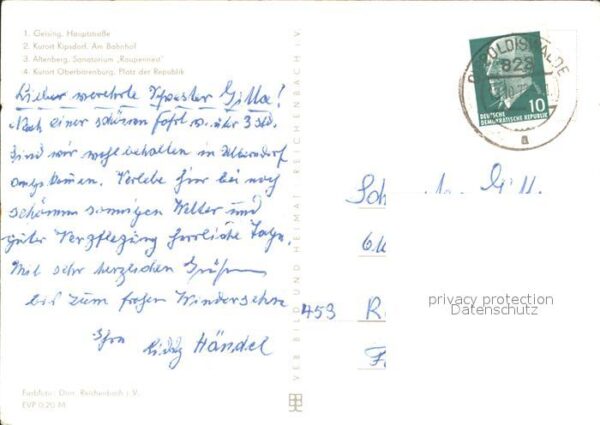 1. Geising. Hauptstraße
2. Kurort Kipsdorf. Am Bahnhof
3. Altenberg. Sanatorium „Raupennest"
4. Kurort Oberbärenburg. Platz der Republik
Lieber verehrte Schwester Gitta!
Nach einer schönen Fahrt v. über 3 Std.
sind wir wohlbehalten in
angekommen. Verlebe hier bei noch
schönem sonnigen Wetter und
guter Verpflegung herrliche Tage.
Mit sehr herzlichen Grüßen
bis zum frohen Wiedersehn
Ihre
Händel
Farbfoto: Darr, Reichenbach i. V.
EVP 0,20 M
VEB BILD UND HEIMAT REICHENBACH I.V.
DIPPOLDISWALDE
828
a
10
DEUTSCHE
DEMOKRATISCHE REPUBLIK
453
privacy protection
Datenschutz